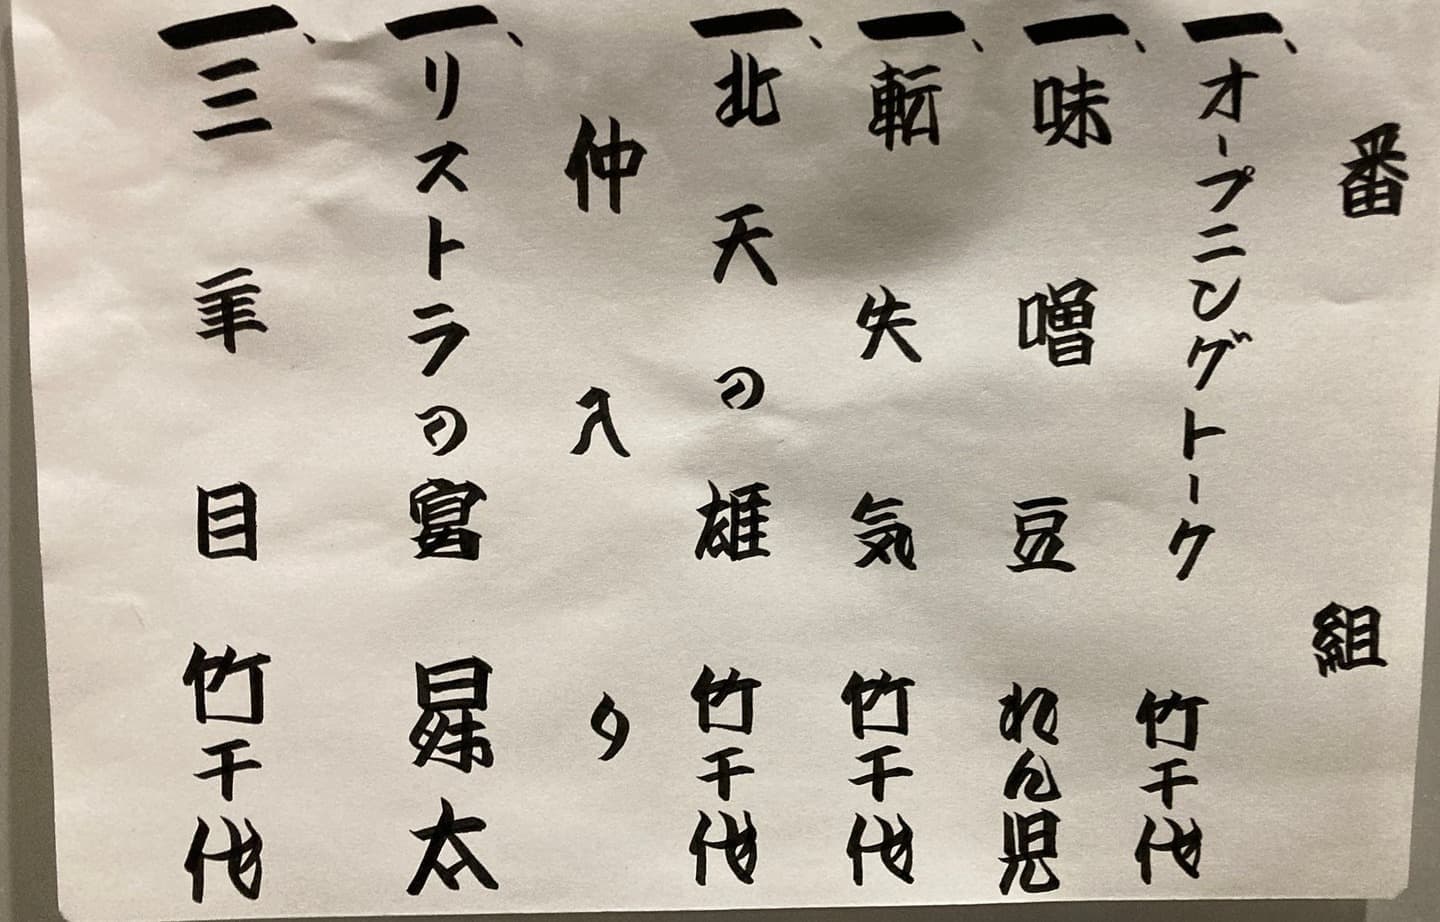 番組
一、オープニングトーク 竹千代
一、味噌豆 れん児
一、転失気 竹千代
一、北天の雄 竹千代
仲入り
一、リストラの宮 昇太
一、三年目 竹千代